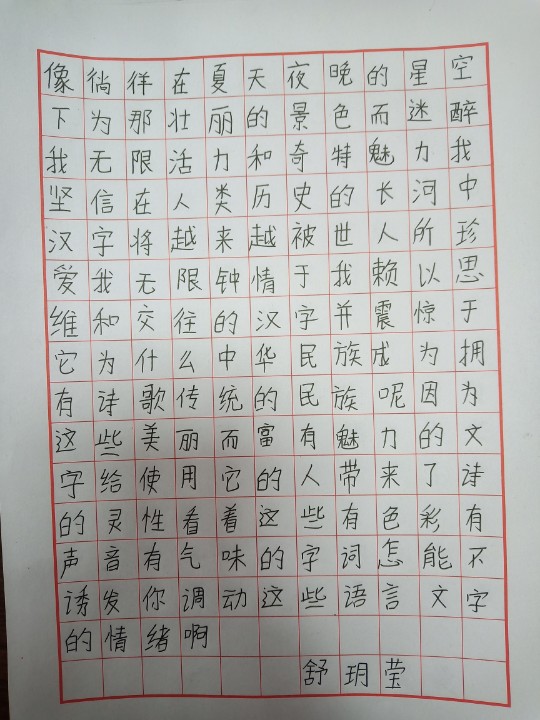 像徜徉在夏天夜晚的星空
下为那壮丽的景色而迷醉
我无限活力和奇特魅力我
坚信在人类历史的长河中
汉字将越来越被世人所珍
爱我无限钟情于我赖以思
维和交往的汉字并震惊于
它为什么中华民族成为拥
有诗歌传统的民族呢因为
这些美丽而富有魅力的文
字给使用它的人带来了诗
的灵性看着这些有色彩有
声音有气味的字词怎能不
诱发你调动这些语言文字
的情绪啊
舒玥莹